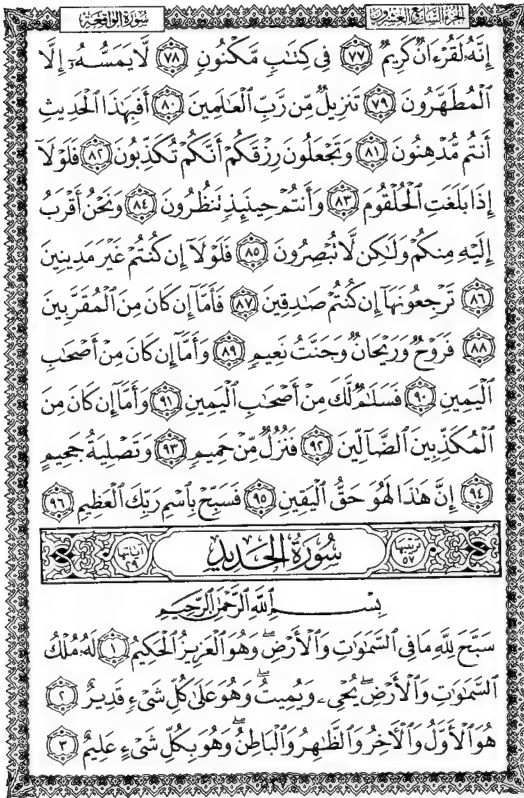 الجزء السابع والعشرون سورة الواقعة
إِنَّهُ لَقُرْءَانٌ كَرِيمٌ ٧٧ فِى كِتَٰبٍ مَّكْنُونٍ ٧٨ لَّا يَمَسُّهُۥٓ إِلَّا
ٱلْمُطَهَّرُونَ ٧٩ تَنزِيلٌ مِّن رَّبِّ ٱلْعَٰلَمِينَ ٨٠ أَفَبِهَٰذَا ٱلْحَدِيثِ
أَنتُم مُّدْهِنُونَ ٨١ وَتَجْعَلُونَ رِزْقَكُمْ أَنَّكُمْ تُكَذِّبُونَ ٨٢ فَلَوْلَآ
إِذَا بَلَغَتِ ٱلْحُلْقُومَ ٨٣ وَأَنتُمْ حِينَئِذٍ تَنظُرُونَ ٨٤ وَنَحْنُ أَقْرَبُ
إِلَيْهِ مِنكُمْ وَلَٰكِن لَّا تُبْصِرُونَ ٨٥ فَلَوْلَآ إِن كُنتُمْ غَيْرَ مَدِينِينَ
٨٦ تَرْجِعُونَهَآ إِن كُنتُمْ صَٰدِقِينَ ٨٧ فَأَمَّآ إِن كَانَ مِنَ ٱلْمُقَرَّبِينَ
٨٨ فَرَوْحٌ وَرَيْحَانٌ وَجَنَّتُ نَعِيمٍ ٨٩ وَأَمَّآ إِن كَانَ مِنْ أَصْحَٰبِ
ٱلْيَمِينِ ٩٠ فَسَلَٰمٌ لَّكَ مِنْ أَصْحَٰبِ ٱلْيَمِينِ ٩١ وَأَمَّآ إِن كَانَ مِنَ
ٱلْمُكَذِّبِينَ ٱلضَّآلِّينَ ٩٢ فَنُزُلٌ مِّنْ حَمِيمٍ ٩٣ وَتَصْلِيَةُ جَحِيمٍ
٩٤ إِنَّ هَٰذَا لَهُوَ حَقُّ ٱلْيَقِينِ ٩٥ فَسَبِّحْ بِٱسْمِ رَبِّكَ ٱلْعَظِيمِ ٩٦
ترتيبها ٥٧ سُورَةُ الْحَدِيدِ آياتها ٢٩
بِسْمِ ٱللَّهِ ٱلرَّحْمَٰنِ ٱلرَّحِيمِ
سَبَّحَ لِلَّهِ مَا فِى ٱلسَّمَٰوَٰتِ وَٱلْأَرْضِ ۖ وَهُوَ ٱلْعَزِيزُ ٱلْحَكِيمُ ١ لَهُۥ مُلْكُ
ٱلسَّمَٰوَٰتِ وَٱلْأَرْضِ ۖ يُحْىِۦ وَيُمِيتُ ۖ وَهُوَ عَلَىٰ كُلِّ شَىْءٍ قَدِيرٌ ٢
هُوَ ٱلْأَوَّلُ وَٱلْءَاخِرُ وَٱلظَّٰهِرُ وَٱلْبَاطِنُ ۖ وَهُوَ بِكُلِّ شَىْءٍ عَلِيمٌ ٣